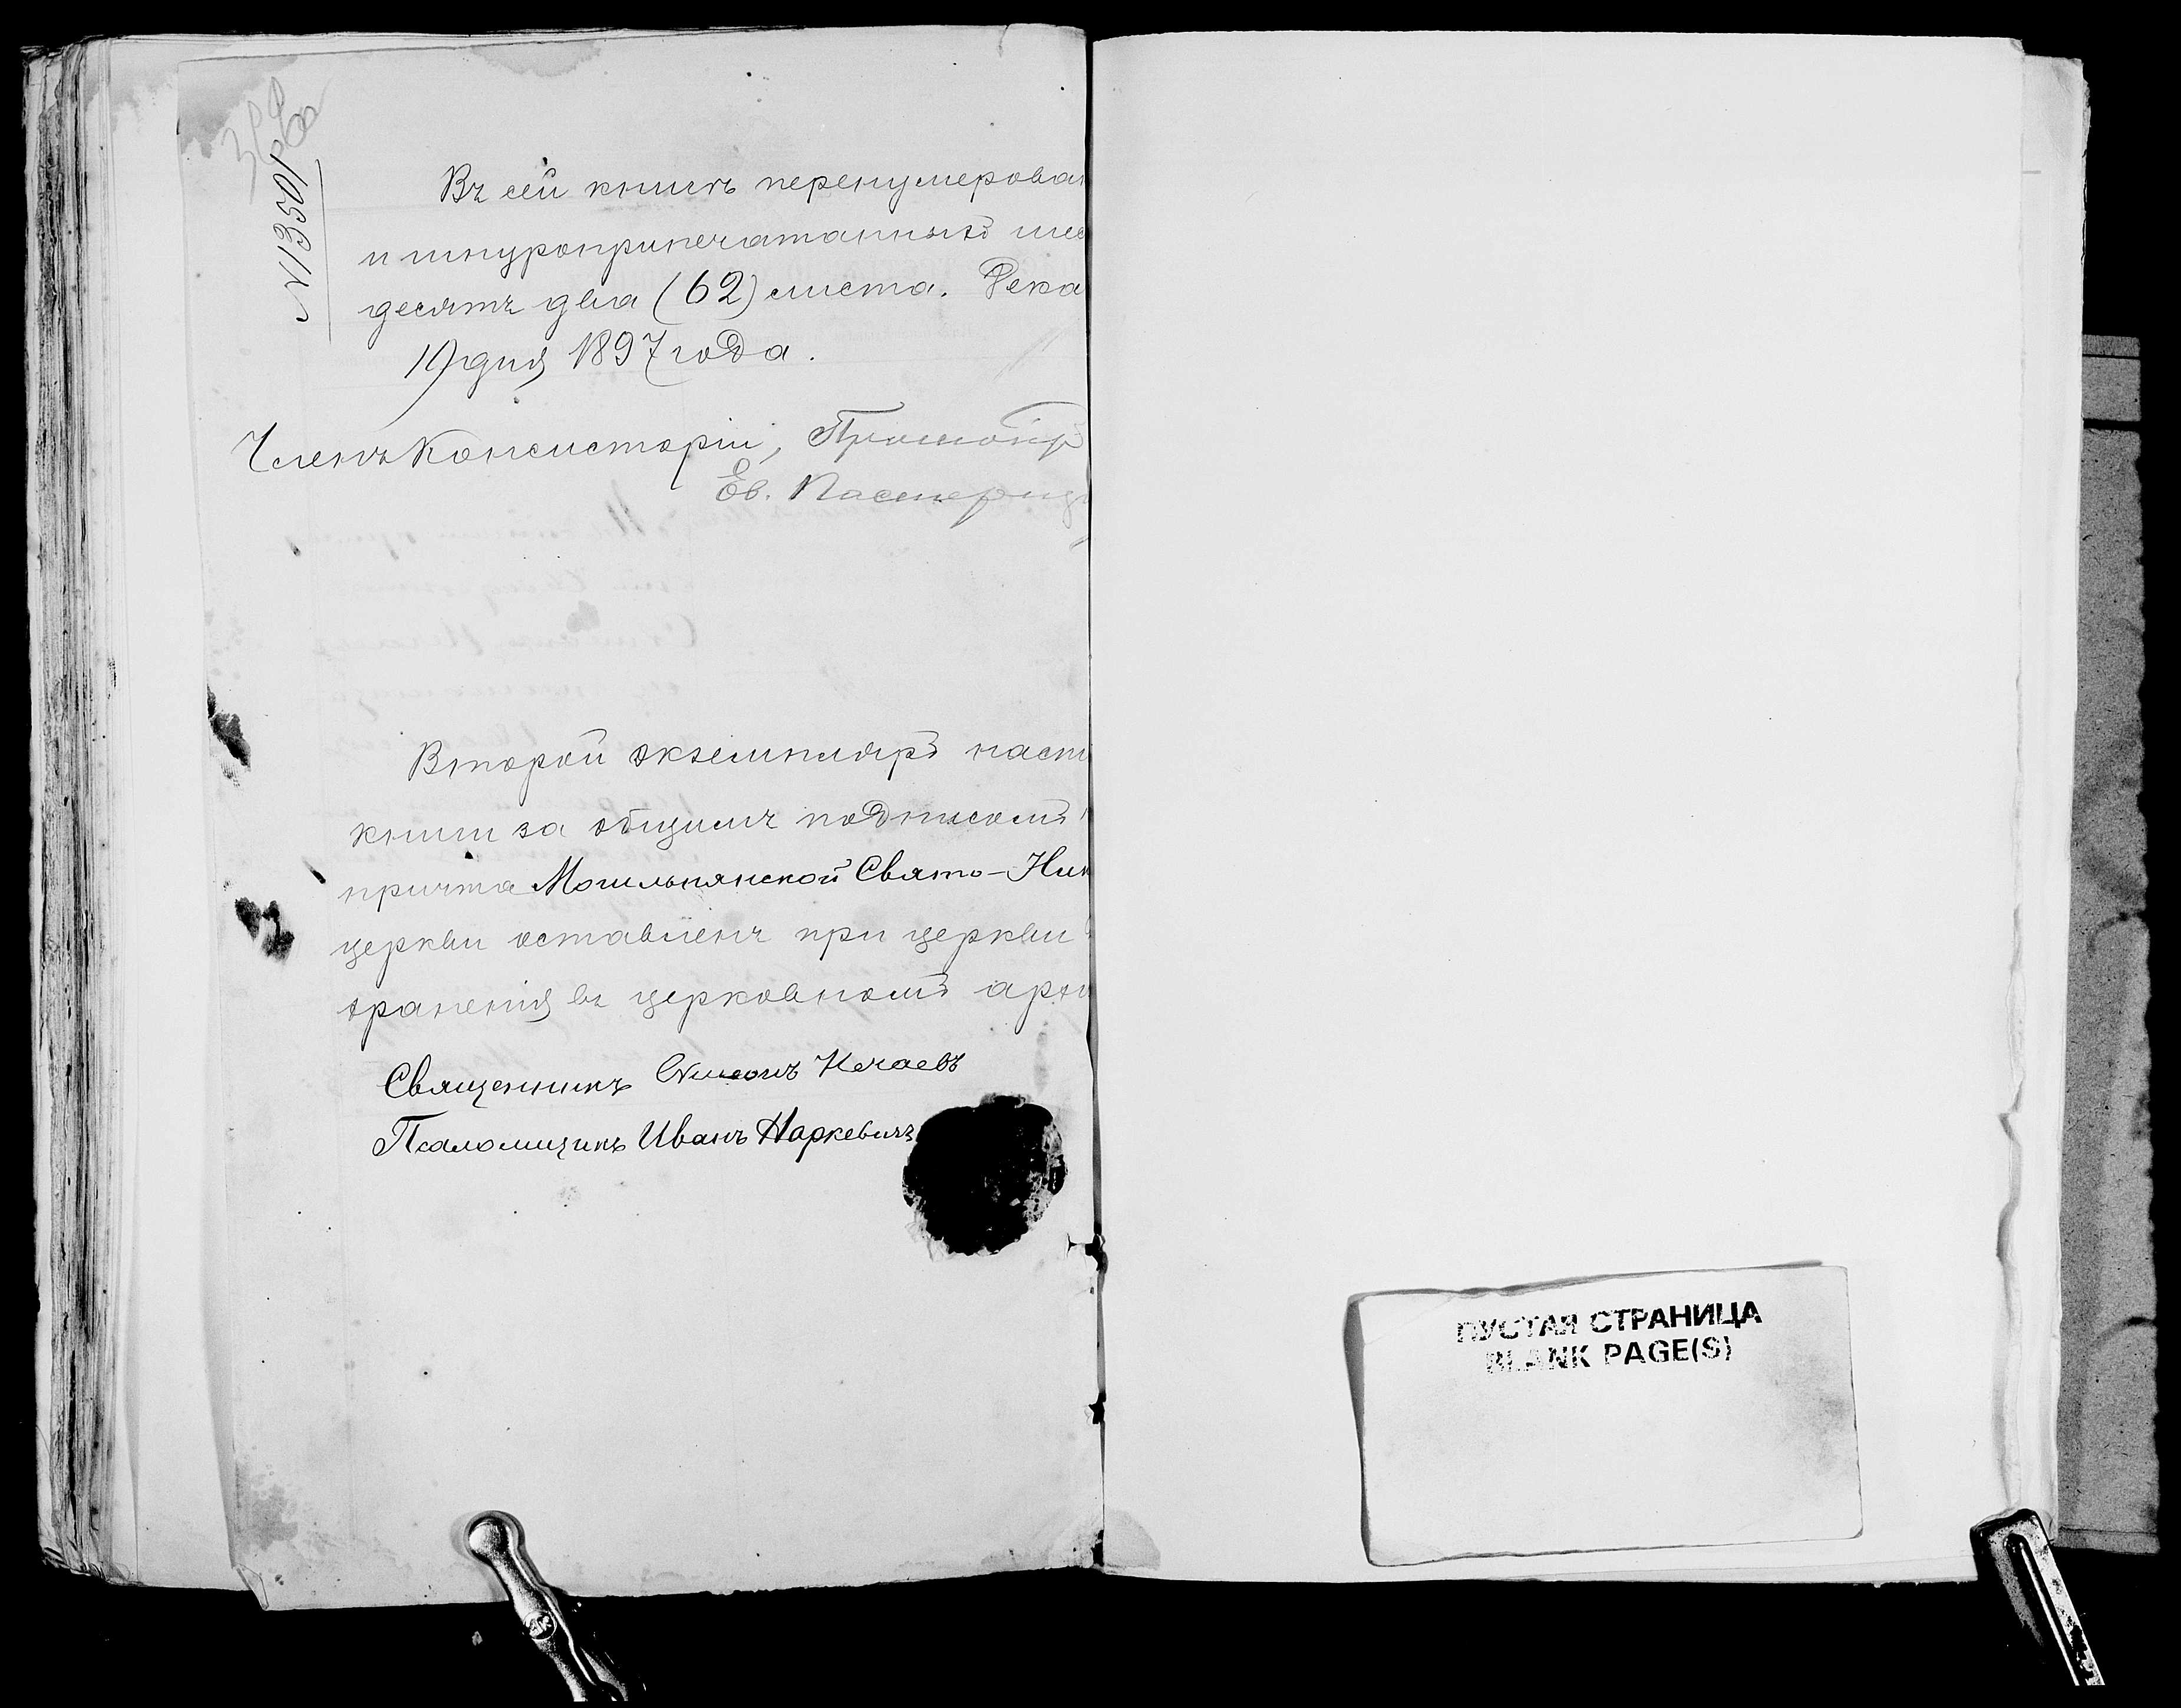 № 13501
Въ сей книгѣ перенумерован
и шнуроприпечатанныхъ шес
десятъ два (62) листа. Дека
19 дня 1897 года.
Членъ Консисторіи,
Ев.
Второй экземпляръ наст
книги за общимъ подписомъ
причта Могильнянской Свято-Ник
церкви оставленъ при церкви
храненія въ церковномъ архи
Священникъ Симеонъ Нечаевъ
Псаломщикъ Иванъ Наркевичъ
ПУСТАЯ СТРАНИЦА
BLANK PAGE(S)